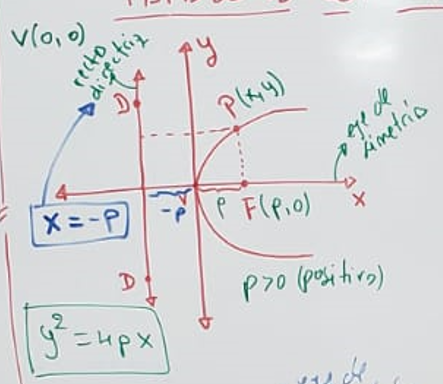 V(0,0)
recta
directriz
y
D
P(x,y)
eje de
simetría
x = -p
-p
p
F(p,0)
x
D
p>0 (positivo)
y² = 4px
eje de